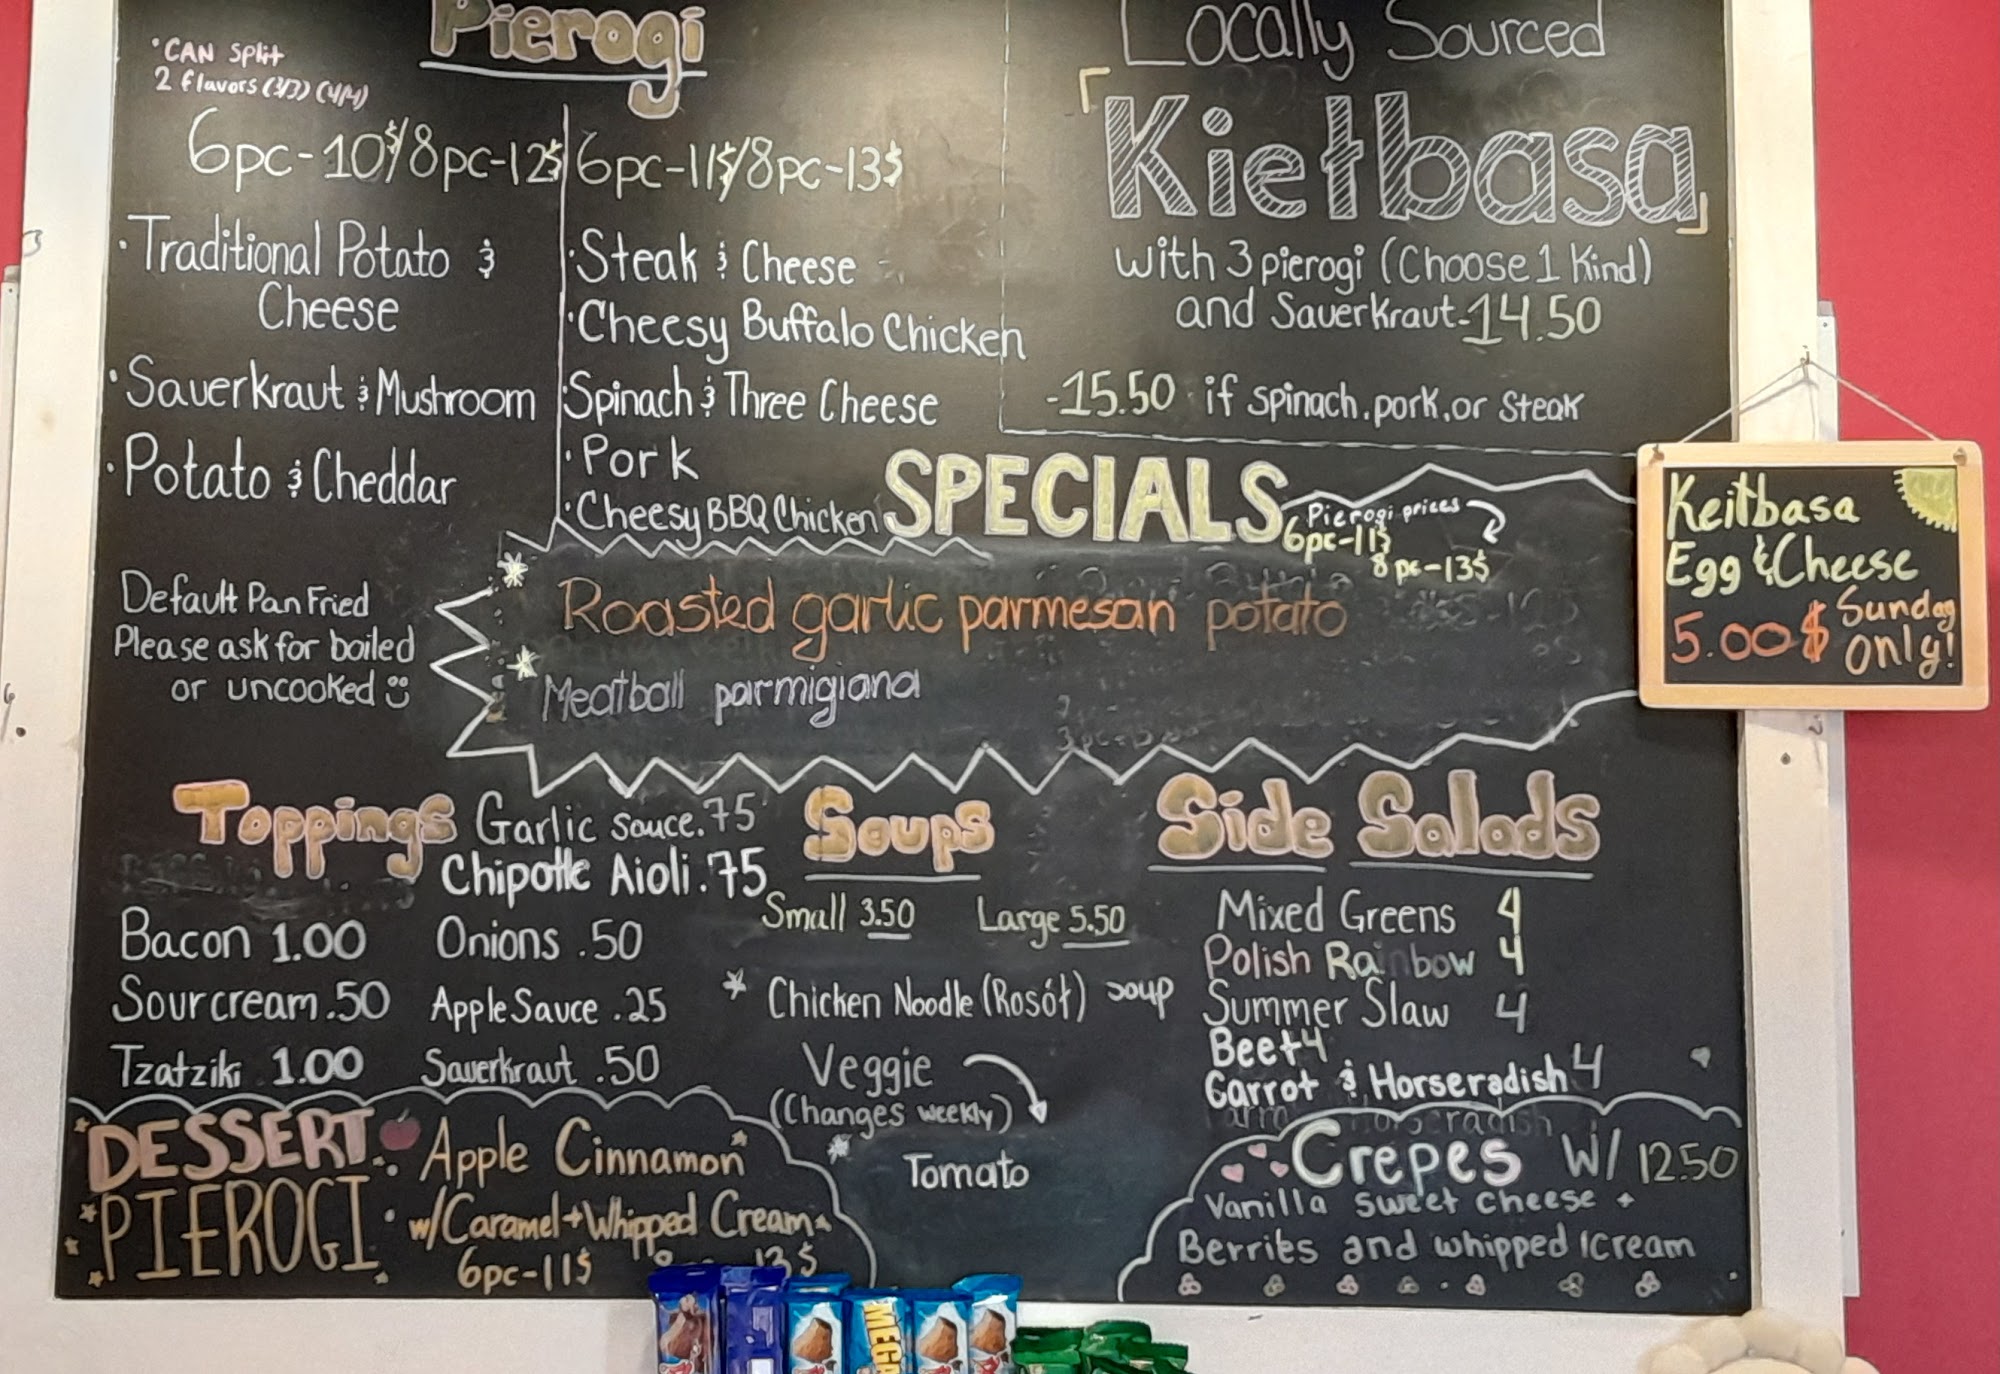 Pierogi
·CAN Split
2 flavors (3/3) (4/4)
6pc-10$/8pc-12$
·Traditional Potato &
Cheese
·Sauerkraut & Mushroom
·Potato & Cheddar
Default Pan Fried
Please ask for boiled
or uncooked
6pc-11$/8pc-13$
·Steak & Cheese
·Cheesy Buffalo Chicken
·Spinach & Three Cheese
·Pork
·Cheesy BBQ Chicken
Locally Sourced
Kiełbasa
with 3 pierogi (Choose 1 Kind)
and Sauerkraut-14.50
-15.50 if spinach, pork, or steak
SPECIALS
Pierogi prices
6pc-11$
8pc-13$
Roasted garlic parmesan potato
Meatball parmigiana
Keiłbasa
Egg & Cheese
5.00$ Sunday
only!
Toppings
Garlic sauce .75
Chipotle Aioli .75
Bacon 1.00
Onions .50
Sour cream .50
Apple Sauce .25
Tzatziki 1.00
Sauerkraut .50
Soups
Small 3.50 Large 5.50
Chicken Noodle (Rosół) soup
Veggie
(Changes weekly)
Tomato
Side Salads
Mixed Greens 4
Polish Rainbow 4
Summer Slaw 4
Beet 4
Carrot & Horseradish 4
DESSERT
PIEROGI
Apple Cinnamon
w/Caramel+Whipped Cream
6pc-11$ 13$
Crepes W/ 12.50
Vanilla sweet cheese +
Berries and whipped cream
MEGA